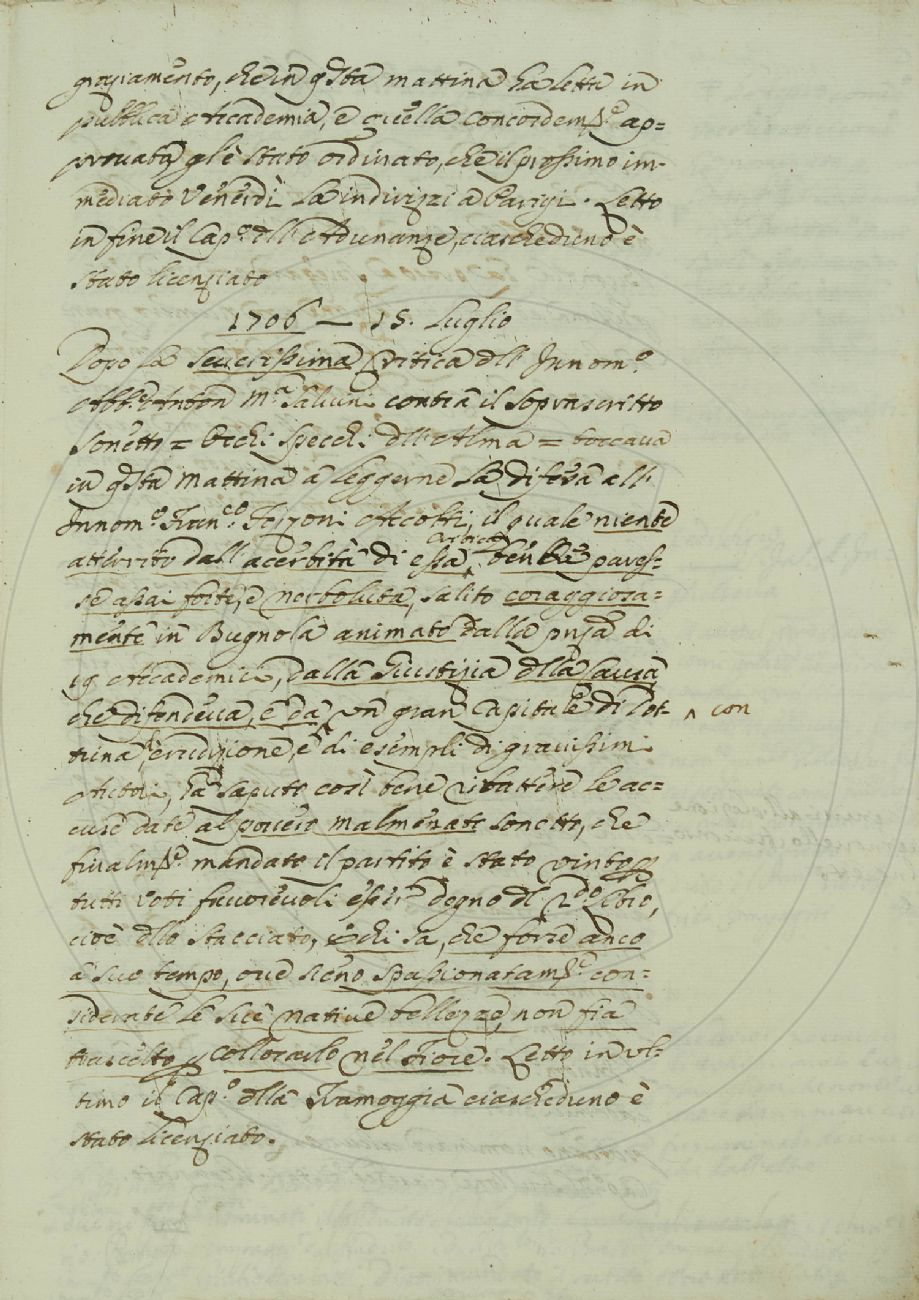 graziamento, che in qsta mattina ha letta in
pubblica Accademia, e quella concordem.e ap=
provata gl'è stato ordinato, che il prossimo im-
mediato Venerdì la indirizzi a Parigi. Letto
in fine il Cap.o dll'Adunanze, ciascheduno è
stato licenziato
1706 — 15. Luglio
Dopo la severissima Critica dll'Innom.o
Abb.e Anton M.a Salvini contra il soprascritto
sonetto = Occhi specchi dll'Alma = toccava
in qsta mattina a leggerne la difesa all'
Innom.o Fran.co Forzoni Accolti, il quale niente
atterrito dall'acerbità di essa Critica, benche pares-
se assai forte, e nerboruta, salito coraggiosa=
mente in Bugnola animato dalla pnza di
19 Accademici, dalla Giustizia dlla Causa,
che difendeva, e da un gran Capitale di Dot-
trina, erudizione, e di esempli di gravissimi
^ con
Autori, ha saputo così bene ribattere le ac=
cuse date al povero malmenato sonetto, che
finalm.e mandato il partito è stato vinto p
tutti voti favorevoli esser degno dl 2.do Cibro,
cioè dllo stacciato, e chi sa, che forse anco
à suo tempo, ove sieno spassionatam.e con=
siderate le sue native bellezze, non sia
trascelto p collocarlo nel Fiore. Letto in ul-
timo il Cap.o dlla Tramoggia ciascheduno è
stato licenziato.